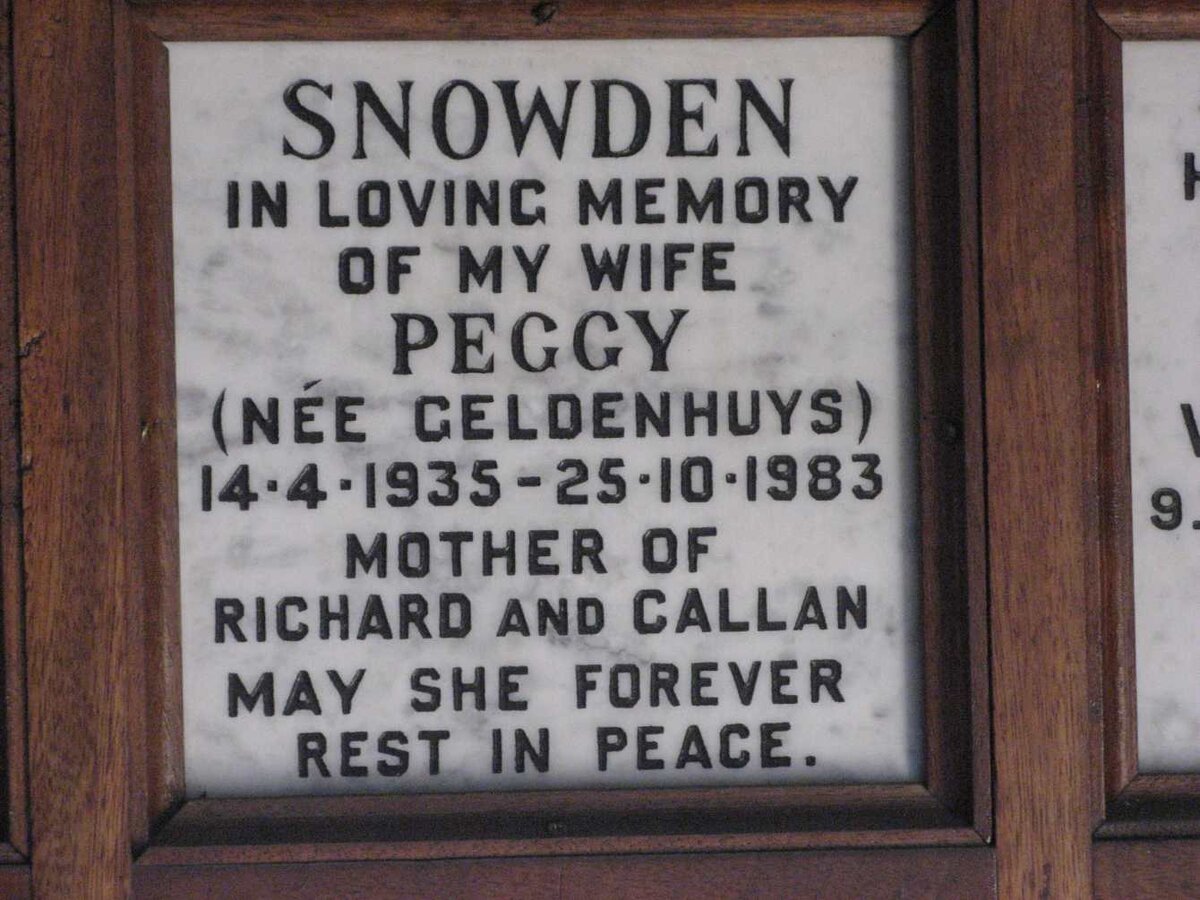 SNOWDEN
IN LOVING MEMORY
OF MY WIFE
PEGGY
(NÉE GELDENHUYS)
14·4·1935-25·10·1983
MOTHER OF
RICHARD AND CALLAN
MAY SHE FOREVER
REST IN PEACE.
9.